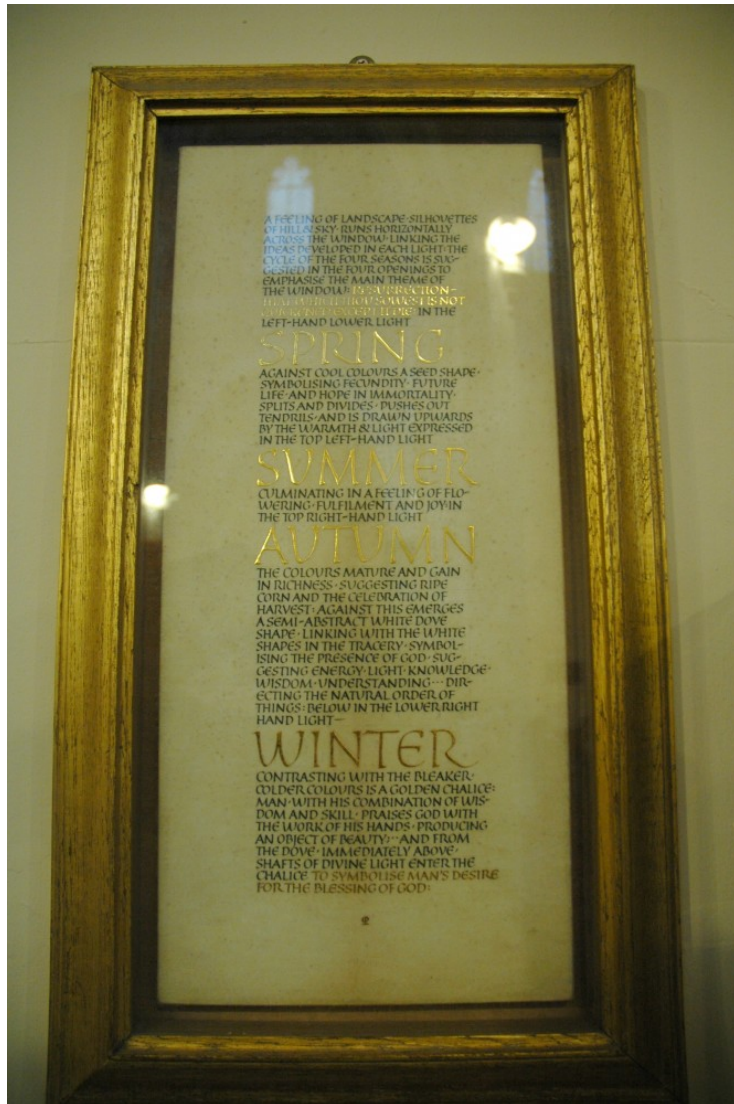 A FEELING OF LANDSCAPE · SILHOUETTES
OF HILL & SKY · RUNS HORIZONTALLY
ACROSS THE WINDOW · LINKING THE
IDEAS DEVELOPED IN EACH LIGHT: THE
CYCLE OF THE FOUR SEASONS IS SUG-
GESTED IN THE FOUR OPENINGS TO
EMPHASISE THE MAIN THEME OF
THE WINDOW: RESURRECTION–
THAT WHICH THOU SOWEST IS NOT
QUICKENED EXCEPT IT DIE IN THE
LEFT-HAND LOWER LIGHT
SPRING
AGAINST COOL COLOURS A SEED SHAPE ·
SYMBOLISING FECUNDITY · FUTURE
LIFE · AND HOPE IN IMMORTALITY ·
SPLITS AND DIVIDES · PUSHES OUT
TENDRILS · AND IS DRAWN UPWARDS
BY THE WARMTH & LIGHT EXPRESSED
IN THE TOP LEFT-HAND LIGHT
SUMMER
CULMINATING IN A FEELING OF FLO-
WERING · FULFILMENT AND JOY · IN
THE TOP RIGHT-HAND LIGHT
AUTUMN
THE COLOURS MATURE AND GAIN
IN RICHNESS · SUGGESTING RIPE
CORN AND THE CELEBRATION OF
HARVEST · AGAINST THIS EMERGES
A SEMI-ABSTRACT WHITE DOVE
SHAPE · LINKING WITH THE WHITE
SHAPES IN THE TRACERY · SYMBOL-
ISING THE PRESENCE OF GOD · SUG-
GESTING ENERGY · LIGHT · KNOWLEDGE ·
WISDOM · UNDERSTANDING ··· DIR-
ECTING THE NATURAL ORDER OF
THINGS: BELOW IN THE LOWER RIGHT
HAND LIGHT —
WINTER
CONTRASTING WITH THE BLEAKER ·
COLDER COLOURS IS A GOLDEN CHALICE:
MAN · WITH HIS COMBINATION OF WIS-
DOM AND SKILL · PRAISES GOD WITH
THE WORK OF HIS HANDS · PRODUCING
AN OBJECT OF BEAUTY: ··· AND FROM
THE DOVE · IMMEDIATELY ABOVE ·
SHAFTS OF DIVINE LIGHT ENTER THE
CHALICE TO SYMBOLISE MAN'S DESIRE
FOR THE BLESSING OF GOD: